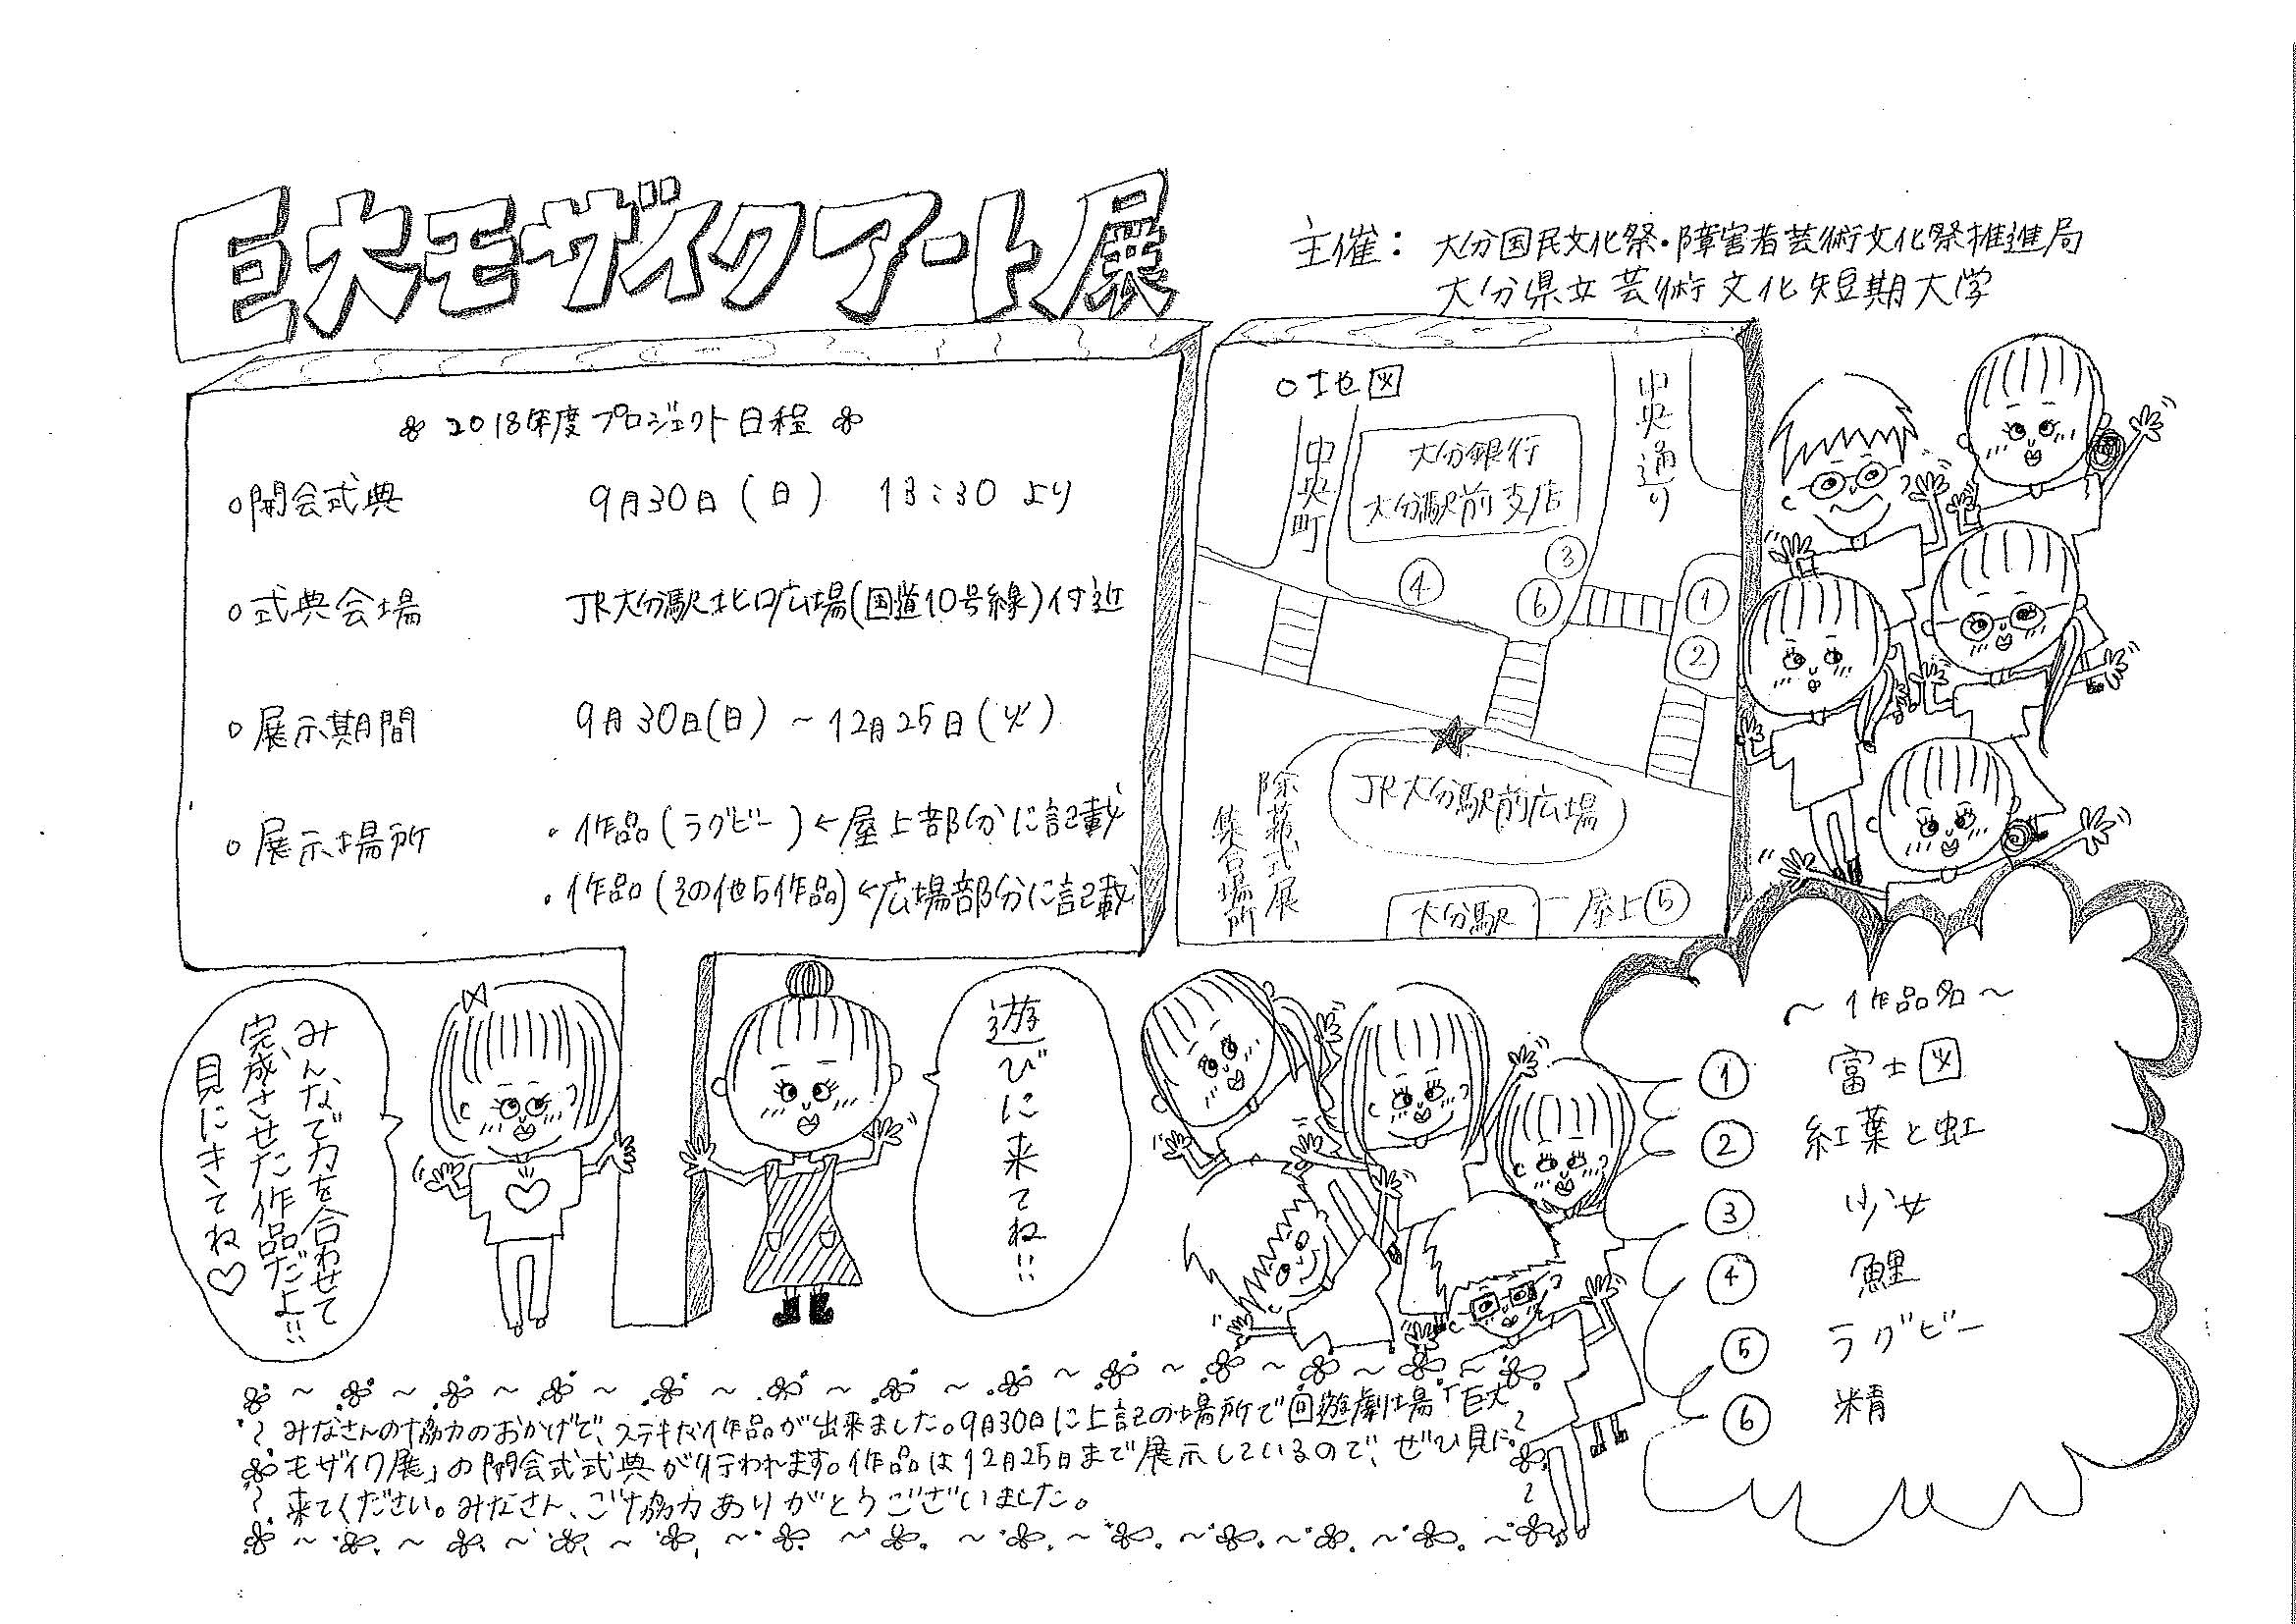 巨大モザイクアート展
主催： 大分国民文化祭・障害者芸術文化祭推進局
大分県立芸術文化短期大学
2018年度プロジェクト日程
○開会式典 9月30日（日） 13：30 より
○式典会場 JR大分駅北口広場(国道10号線)付近
○展示期間 9月30日(日) ～12月25日(火)
○展示場所 ・作品(ラグビー)←屋上部分に記載
・作品(その他5作品)←広場部分に記載
○地図
中央町
大分銀行
大分駅前支店
中央通り
③
④
⑥
①
②
★
JR大分駅前広場
除幕式展
集合場所
大分駅
屋上⑤
みんなで力を合わせて
完成させた作品だよ!!
見にきてね♡
遊びに来てね!!
～作品名～
① 富士図
② 紅葉と虹
③ 少女
④ 鯉
⑤ ラグビー
⑥ 精
みなさんの協力のおかげで、ステキな作品が出来ました。9月30日に上記の場所で回遊劇場「巨大
モザイク展」の開会式式典が行われます。作品は12月25日まで展示しているので、ぜひ見に
来てください。みなさん、ご協力ありがとうございました。